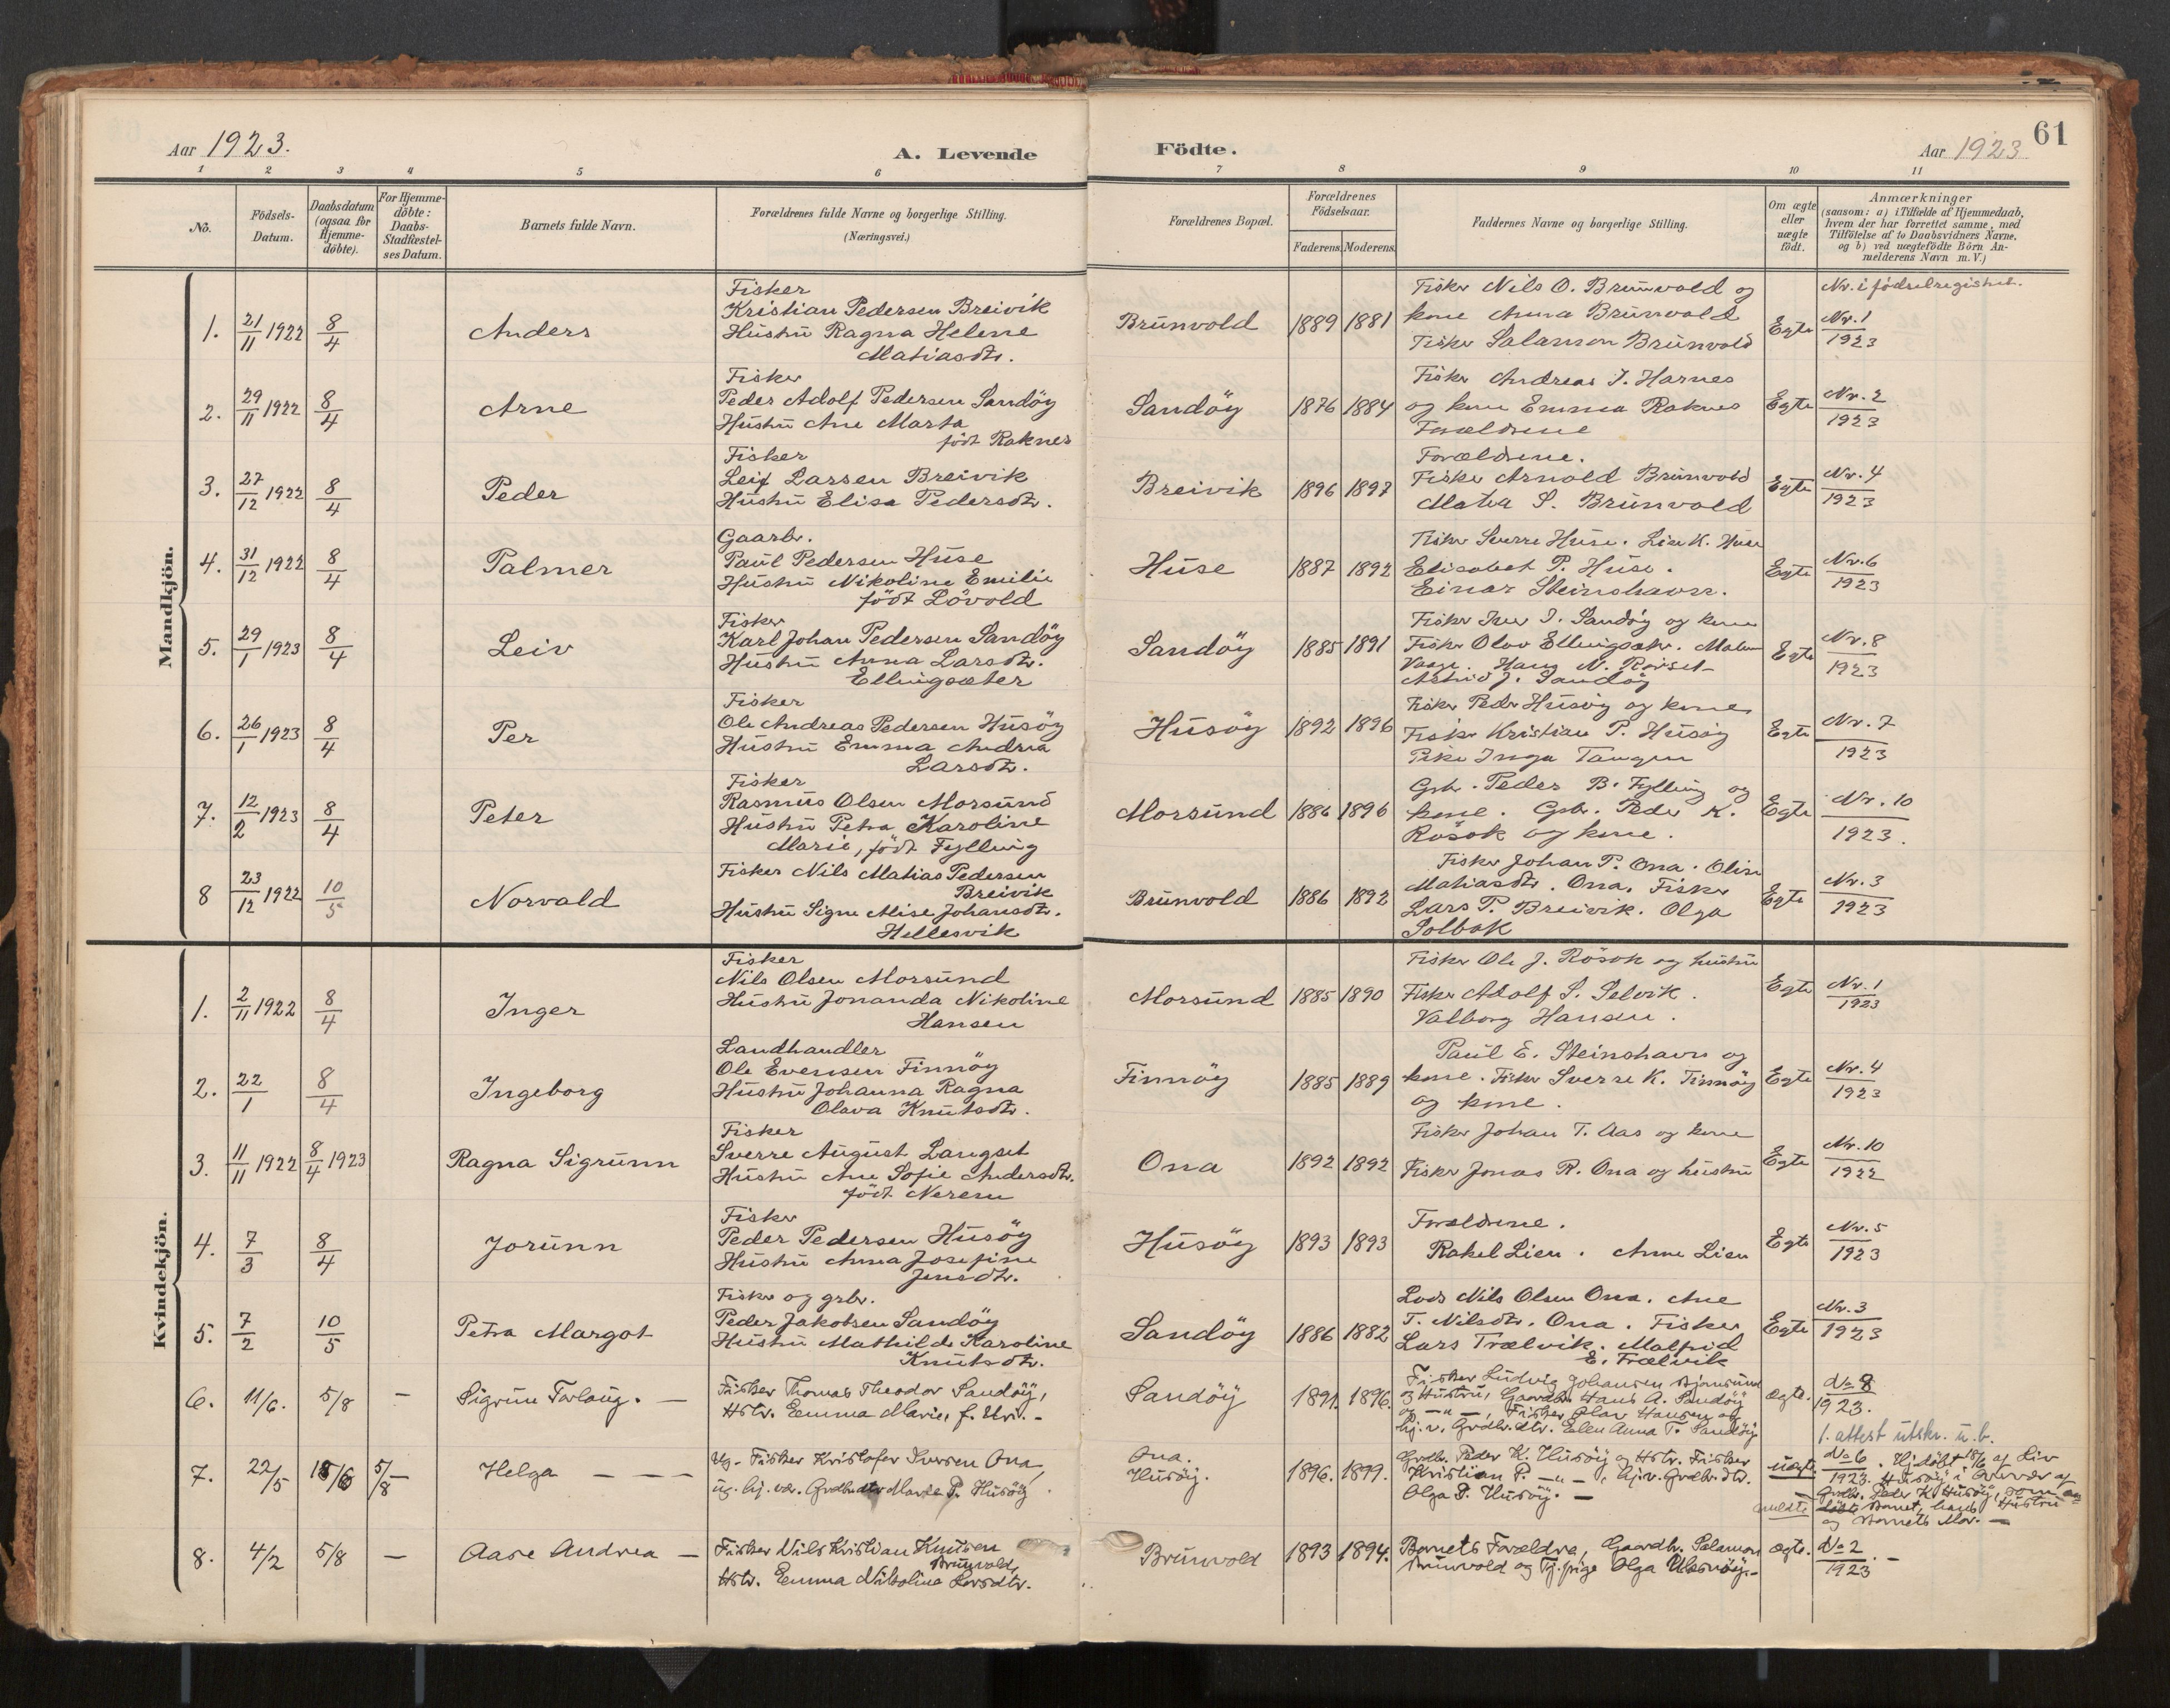 Aar 1923.
A. Levende
Födte.
Aar 1923
61
1 2 3 4 5 6 7 8 9 10 11
No.
Födsels-Datum.
Daabsdatum (ogsaa for Hjemme-döbte).
For Hjemme-döbte: Daabs-Stadfæstel-ses Datum.
Barnets fulde Navn.
Forældrenes fulde Navne og borgerlige Stilling. (Næringsvei.)
Forældrenes Bopæl.
Forældrenes Födselsaar.
Faderens. Moderens.
Faddernes Navne og borgerlige Stilling.
Om ægte eller uægte födt.
Anmærkninger
(saasom: a) i Tilfælde af Hjemmedaab,
hvem der har forrettet samme, med
Tilföielse af to Daabsvidners Navne,
og b) ved uægtefödte Börn An-
melderens Navn m. V.)
Nr. i födselregistret.
Mandkjön.
1. 21/11 1922 8/4 Anders
Fisker
Kristian Pedersen Breivik
Hustru Ragna Helene
Matiasdtr.
Brunvold 1889 1881
Fisker Nils O. Brunvold og
kone Anna Brunvold
Fisker Salamon Brunvold
Egte Nr. 1 1923
2. 29/11 1922 8/4 Arne
Fisker
Peder Adolf Pedersen Sandöy
Hustru Ane Marta
födt Raknes
Sandöy 1876 1884
Fisker Andreas J. Harnes
og kone Emma Raknes
Forældrene
Egte Nr. 2 1923
3. 27/12 1922 8/4 Peder
Fisker
Leif Larsen Breivik
Hustru Elisa Pedersdtr.
Breivik 1896 1897
Forældrene.
Fisker Arnold Brunvold
Matea S. Brunvold
Egte Nr. 4 1923
4. 31/12 1922 8/4 Palmer
Gaarbr.
Paul Pedersen Huse
Hustru Nikoline Emilie
födt Lövold
Huse 1887 1892
Fisker Sverre Huse. Lise K. Huse
Elisabet P. Huse.
Einar Steinshavn.
Egte Nr. 6 1923
5. 29/1 1923 8/4 Leiv
Fisker
Karl Johan Pedersen Sandöy
Hustru Anna Larsdtr.
Ellingsæter
Sandöy 1885 1891
Fisker Iver J. Sandöy og kone
Fisker Olav Ellingsæter.
Vaage. Hans N. Rörset
Astrid J. Sandöy
Egte Nr. 8 1923
6. 26/1 1923 8/4 Per
Fisker
Ole Andreas Pedersen Husöy
Hustru Emma Andrea
Larsdtr.
Husöy 1892 1896
Fisker Peder Husöy og kone
Fisker Kristian P. Husöy
Pike Inga Tangen
Egte Nr. 7 1923
7. 12/2 1923 8/4 Peter
Fisker
Rasmus Olsen Morsund
Hustru Petra Karoline
Marie, födt Fylling
Morsund 1886 1896
Grbr. Peder B. Fylling og
kone. Grbr. Peder K.
Rösok og kone.
Egte Nr. 10 1923.
8 23/12 1922 10/5 Norvald
Fisker Nils Matias Pedersen
Breivik
Hustru Signe Alise Johansdtr.
Hellesvik
Brunvold 1886 1892
Fisker Johan P. Ona. Olise
Matiasdtr. Ona. Fisker
Lars P. Breivik. Olga
Solbak
Egte Nr. 3 1923
Kvindekjön.
1. 2/11 1922 8/4 Inger
Fisker
Nils Olsen Morsund
Hustru Jonanda Nikoline
Hansen
Morsund 1885 1890
Fisker Ole J. Rösok og hustru
Fisker Adolf S. Selvik.
Valborg Hansen.
Egte Nr. 1 1923
2. 22/1 8/4 Ingeborg
Landhandler
Ole Evensen Finnöy
Hustru Johanna Ragna
Olava Knutsdtr.
Finnöy 1885 1889
Paul E. Steinshavn og
kone. Fisker Sverre K. Finnöy
og kone.
Egte Nr. 4 1923
3. 11/11 1922 8/4 1923 Ragna Sigrunn
Fisker
Sverre August Langset
Hustru Ane Sofie Andersdtr.
födt Nerem
Ona 1892 1892
Fisker Johan T. Aas og kone
Fisker Jonas R. Ona og hustru
Egte Nr. 10 1922
4. 7/3 8/4 Jorunn
Fisker
Peder Pedersen Husöy
Hustru Anna Josefine
Jensdtr.
Husöy 1893 1893
Forældrene.
Rakel Lien. Anne Lien
Egte Nr. 5 1923
5. 7/2 10/5 Petra Margot
Fisker og grbr.
Peder Jakobsen Sandöy
Hustru Mathilde Karoline
Knutsdtr.
Sandöy 1886 1882
Lods Nils Olsen Ona. Ane
T. Nilsdtr. Ona. Fisker
Lars Trælvik. Malfrid
E. Trælvik
Egte Nr. 3 1923
6. 11/6. 5/8 — Sigrun Torlaug. —
Fisker Thomas Theodor Sandöy,
Hstr. Emma Marie, f. Uri. -
Sandöy 1891. 1896.
Fisker Ludvig Johansen Bjørnsund
og Hustru, Gaardbr. Hans A. Sandöy
og — " —, Fisker Olav Hansen og
hj.v. Grdbr.dtr. Ellen Anna T. Sandöy
ægte. No 8 1923.
1. attest utskr. u.b.
7. 22/5 15/6 5/8 — Helga — — —
Ug. Fisker Kristofer Iversen Ona,
ug. hj. vær. Grdbr.dtr Marie P. Husöy.
Ona.
Husöy. 1896. 1899.
Grdbr. Peder K. Husöy og Hstr. Fisker
Kristian P. — " —, hj.v. Grdbr.dtr.
Olga P. Husöy. —
uægte. No 6 1923. Hj.döbt 15/6 af Liv
Husöy i Nærvær af
Grdbr. Peder K. Husöy, som an-
meldte Barnet, hans Hustru
og Barnets Mor. —
8. 4/2 5/8 — Aase Andrea —
Fisker Nils Kristian Knutsen
Brunvold,
Hstr. Emma Nikoline Larsdtr.
Brunvold 1893 1894.
Barnets Forældre, Gaardbr. Salamon
Brunvold og Tj.pige Olga Ulsnöy.-
ægte. No 2 1923. -